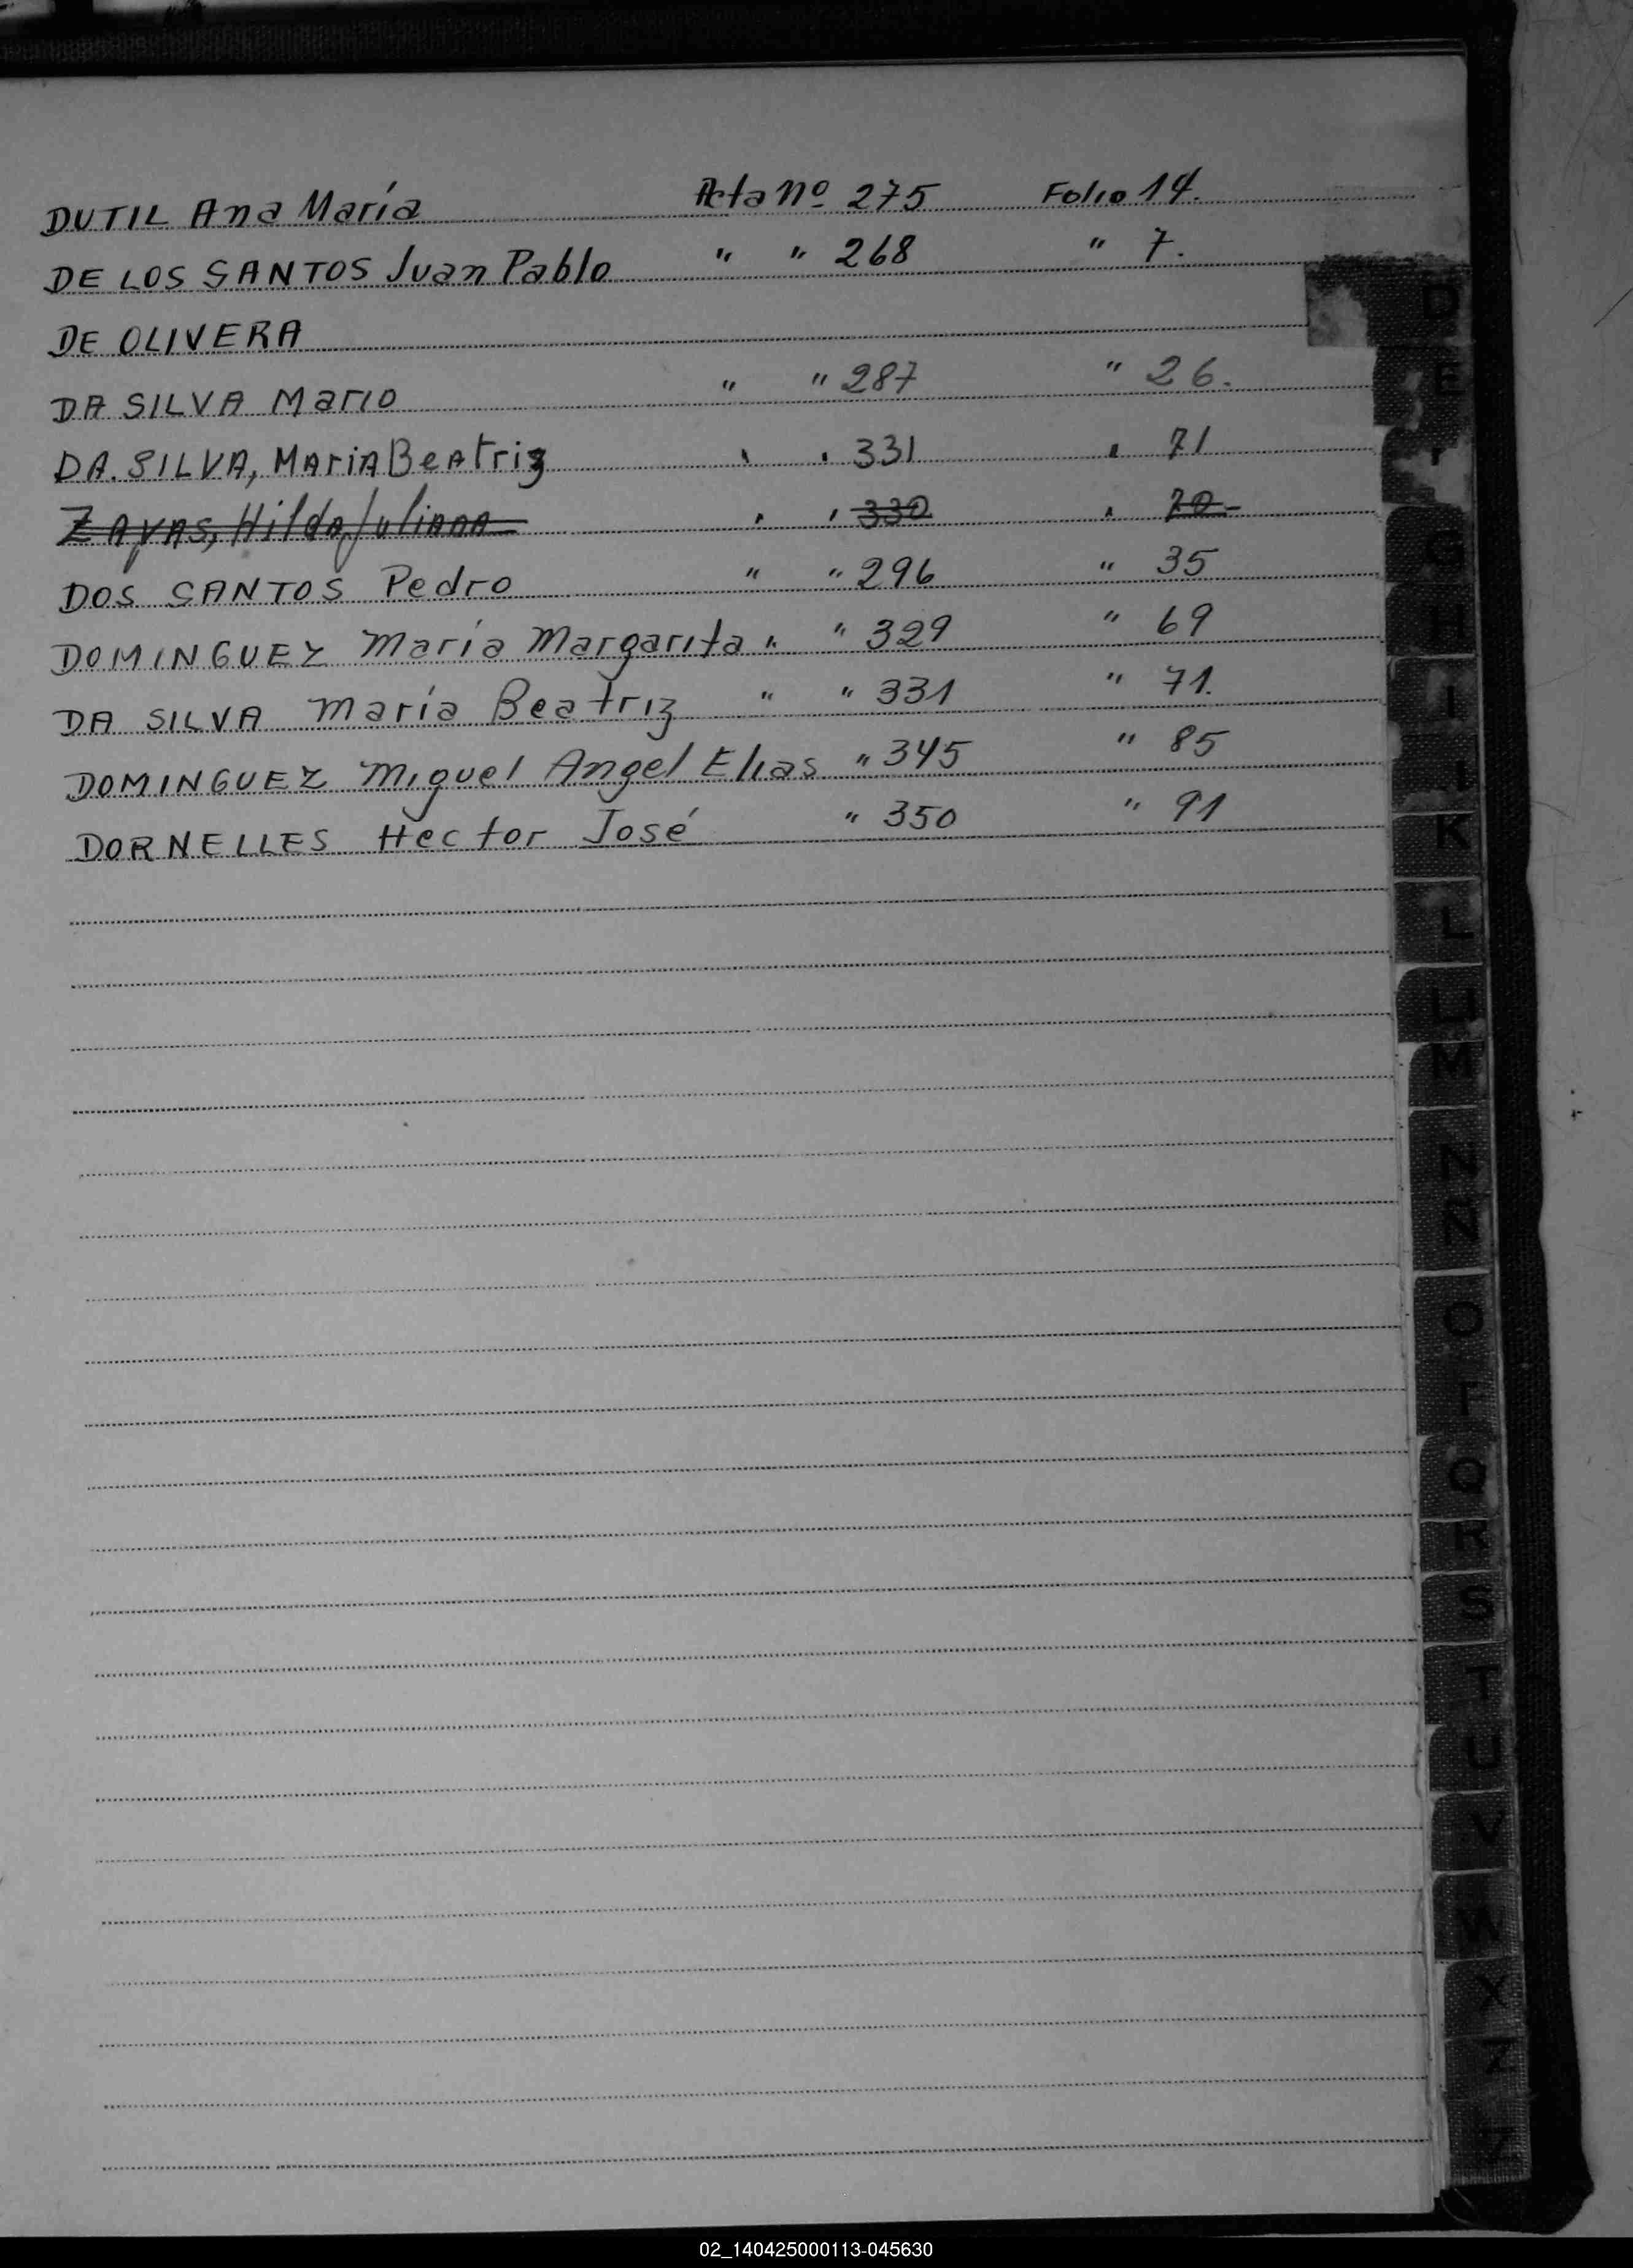 DUTIL Ana María Acta Nº 275 Folio 14.
DE LOS SANTOS Juan Pablo " " 268 " 7.
DE OLIVERA
DA SILVA Mario " " 287 " 26.
DA. SILVA, MARiA BeAtriz " " 331 " 71
ZAYAS, HildA JuliANA " " 330 " 70-
DOS SANTOS Pedro " " 296 " 35
DOMINGUEZ María Margarita " " 329 " 69
DA SILVA María Beatriz " " 331 " 71.
DOMINGUEZ Miguel Angel Elias " 345 " 85
DORNELLES Hector José " 350 " 91
D
E
F
G
H
I
K
L
M
N
Ñ
O
Q
R
S
T
U
V
W
X
Z
02_140425000113-045630